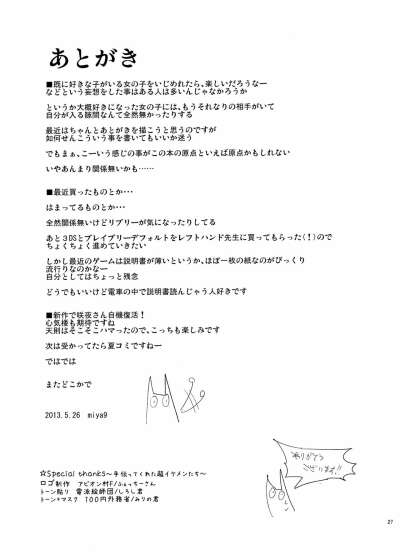 あとがき
■既に好きな子がいる女の子をいじめれたら、楽しいだろうなー
などという妄想をした事はある人は多いんじゃなかろうか
というか大概好きになった女の子には、もうそれなりの相手がいて
自分が入る隙間なんて全然無かったりする
最近はちゃんとあとがきを描こうと思うのですが
如何せんこういう事を書いてもいいか迷う
でもまぁ、こーいう感じの事がこの本の原点といえば原点かもしれない
いやあんまり関係無いかも……
■最近買ったものとか・・・
はまってるものとか・・・
全然関係無いけどリブリーが気になったりしてる
あと3DSとブレイブリーデフォルトをレフトハンド先生に買ってもらった(!)ので
ちょくちょく進めていきたい
しかし最近のゲームは説明書が薄いというか、ほぼ一枚の紙なのがびっくり
流行りなのかなー
自分としてはちょっと残念
どうでもいいけど電車の中で説明書読んじゃう人好きです
■新作で咲夜さん自機復活！
心気楼も期待ですね
天則はそこそこハマったので、こっちも楽しみです
次は受かってたら夏コミですねー
ではでは
またどこかで
2013.5.26 miya9
ありがとう
ございます!!
☆Special thanks～手伝ってくれた超イケメンたち～
ロゴ制作 アビオン村F/ふぉっちーさん
トーン貼り 電波絵師団/しろし君
トーン+マスク 100円外務省/みりの君
27